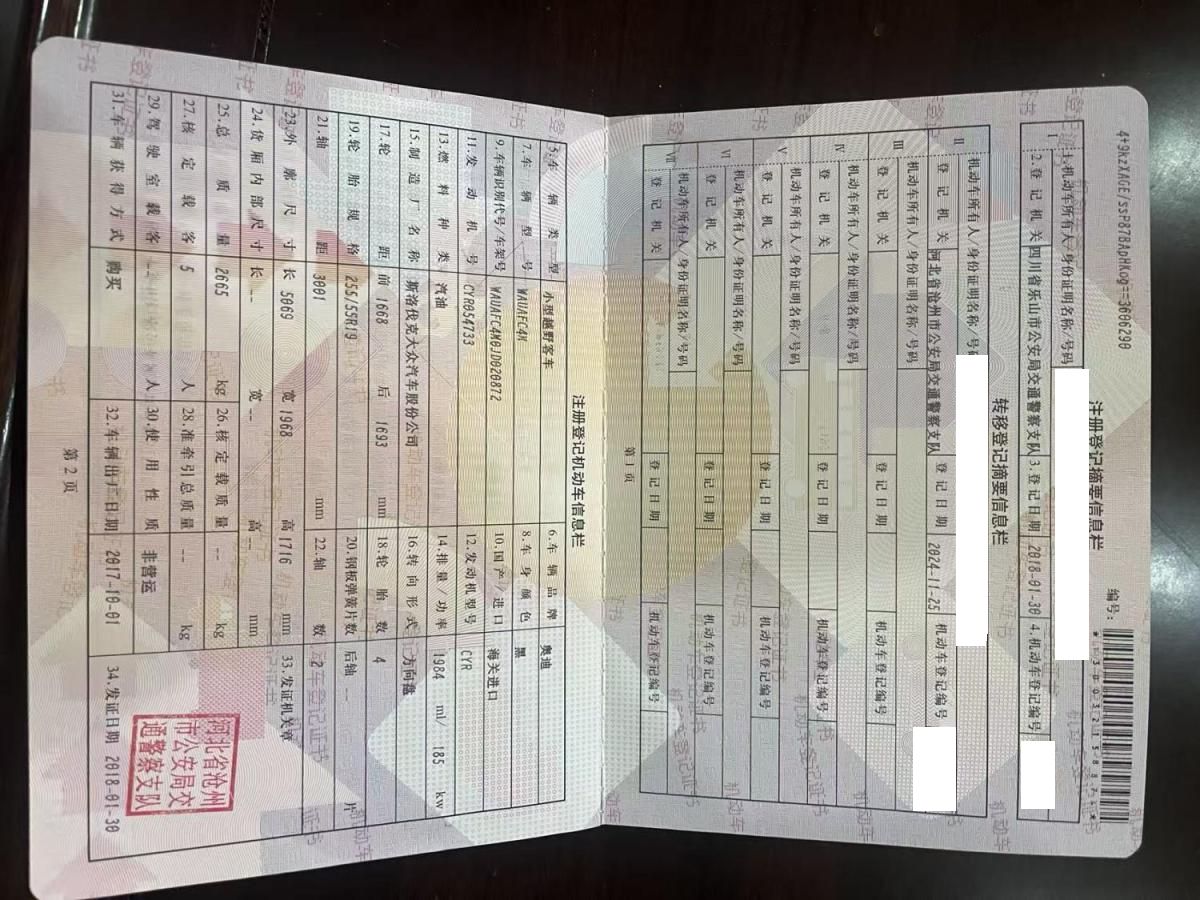 4t9kzXAGE/ssP87BApHKog==3606290
注册登记摘要信息栏
编号:
I
1.机动车所有人/身份证明名称/号码
2.登记机关 四川省乐山市公安局交通警察支队 3.登记日期 2018-01-30 4.机动车登记编号
转移登记摘要信息栏
II
机动车所有人/身份证明名称/号码
登记机关 河北省沧州市公安局交通警察支队 登记日期 2024-11-25 机动车登记编号
III
机动车所有人/身份证明名称/号码
登记机关 登记日期 机动车登记编号
IV
机动车所有人/身份证明名称/号码
登记机关 登记日期 机动车登记编号
V
机动车所有人/身份证明名称/号码
登记机关 登记日期 机动车登记编号
VI
机动车所有人/身份证明名称/号码
登记机关 登记日期 机动车登记编号
VII
机动车所有人/身份证明名称/号码
登记机关 登记日期 机动车登记编号
第1页
注册登记机动车信息栏
5.车辆类型 小型越野客车 6.车辆品牌 奥迪
7.车辆型号 WAUAFC4M 8.车身颜色 黑
9.车辆识别代号/车架号 WAUAFC4M0JD020872 10.国产/进口 海关进口
11.发动机号 CYR054733 12.发动机型号 CYR
13.燃料种类 汽油 14.排量/功率 1984 ml/ 185 kw
15.制造厂名称 斯洛伐克大众汽车股份公司 16.转向形式 方向盘
17.轮距 前 1668 后 1693 mm 18.轮胎数 4
19.轮胎规格 255/55R19 20.钢板弹簧片数 后轴 片
21.轴距 3001 mm 22.轴数 2
23.外廓尺寸 长 5069 宽 1968 高 1716 mm 33.发证机关章
24.货厢内部尺寸 长 -- 宽 -- 高 -- mm
25.总质量 2665 kg 26.核定载质量 -- kg
27.核定载客 5 人 28.准牵引总质量 -- kg
29.驾驶室载客 -- 人 30.使用性质 非营运
31.车辆获得方式 购买 32.车辆出厂日期 2017-10-01 34.发证日期 2018-01-30
河北省沧州
市公安局交
通警察支队
第2页